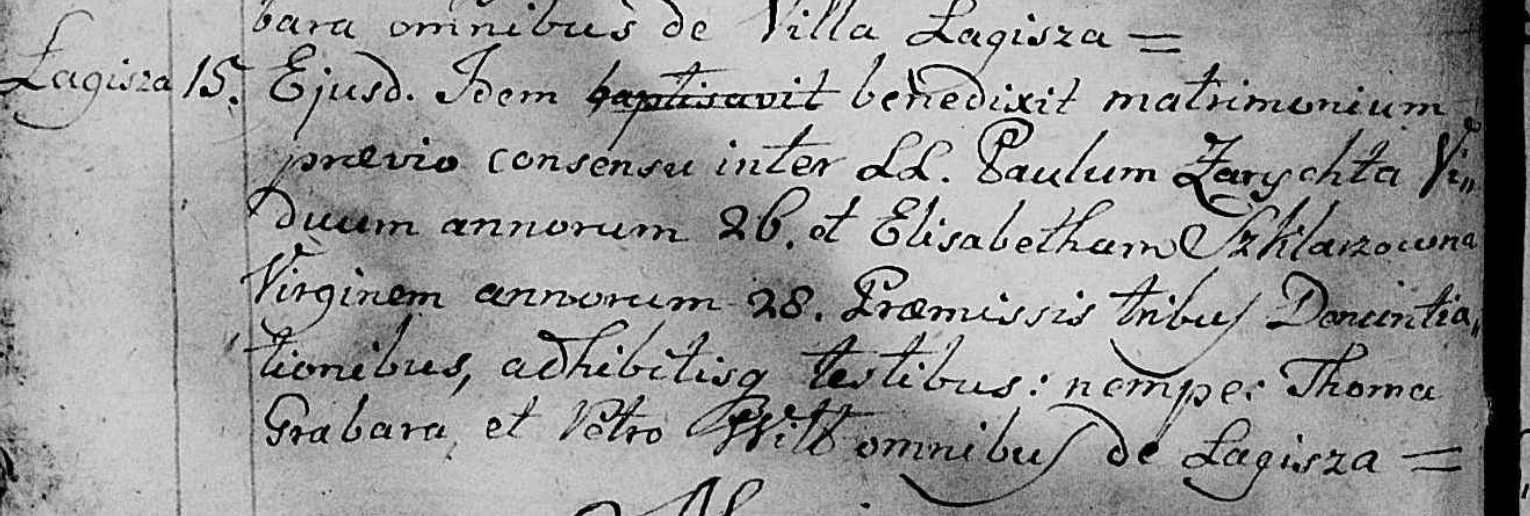 bara omnibus de Villa Łagisza =
Łagisza 15. Ejusd. Idem baptisavit benedixit matrimonium
prævio consensu inter LL. Paulum Zarychta Vi„
duum annorum 26. et Elisabetham Szklarzowna
Virginem annorum 28. Præmissis tribus Denuntia„
tionibus, adhibitisq testibus: nempe: Thoma
Grabara, et Petro Witt omnibus de Łagisza =